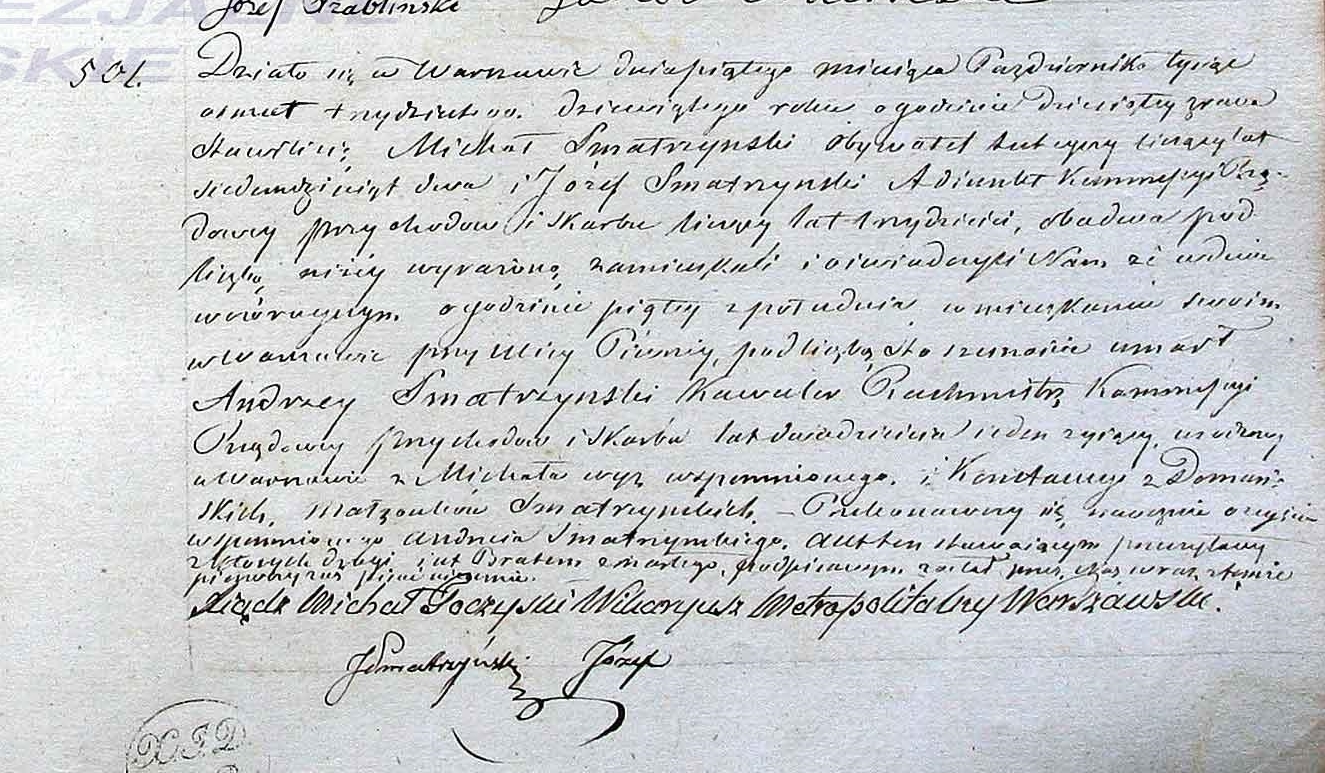 Józef
501. Działo się w Warszawie dnia piątego miesiąca Października tysiąc
osmset trzydziestego dziewiątego roku o godzinie dziewiątey zrana
stawili się Michał Smatrzynski Obywatel tuteyszy liczący lat
siedemdziesiąt dwa i Józef Smatrzynski Adiunkt Kommissyi Rzą-
dowey przychodow i Skarbu liczący lat trzydzieści, obadwa pod
liczbą niżey wyrażoną zamieszkali i oświadczyli Nam że w dniu
wczorayszym o godzinie piątey z południa w mieszkaniu swoim
w Warszawie przy Ulicy Piwney, pod liczbą sto umarł
Andrzey Smatrzynski Kawaler Rachmistrz Kommissyi
Rządowey przychodow i Skarbu lat dwadzieścia ieden żyiący, urodzony
w Warszawie z Michała wyż wspomnionego, i Konstancyi z Domań-
skich, małżonków Smatrzynskich. – Przekonawszy się naocznie o zeyściu
wspomnionego Andrzeia Smatrzynskiego, Akt ten stawaiącym przeczytany
z których drugi iest Bratem zmarłego, podpisanym został przez Nas wraz z temże
pierwszy zaś pisać nieumie.
Xiądz Michał Toczyski Wikaryusz Metropolitalny Warszawski.
JSmatrzyński Józef